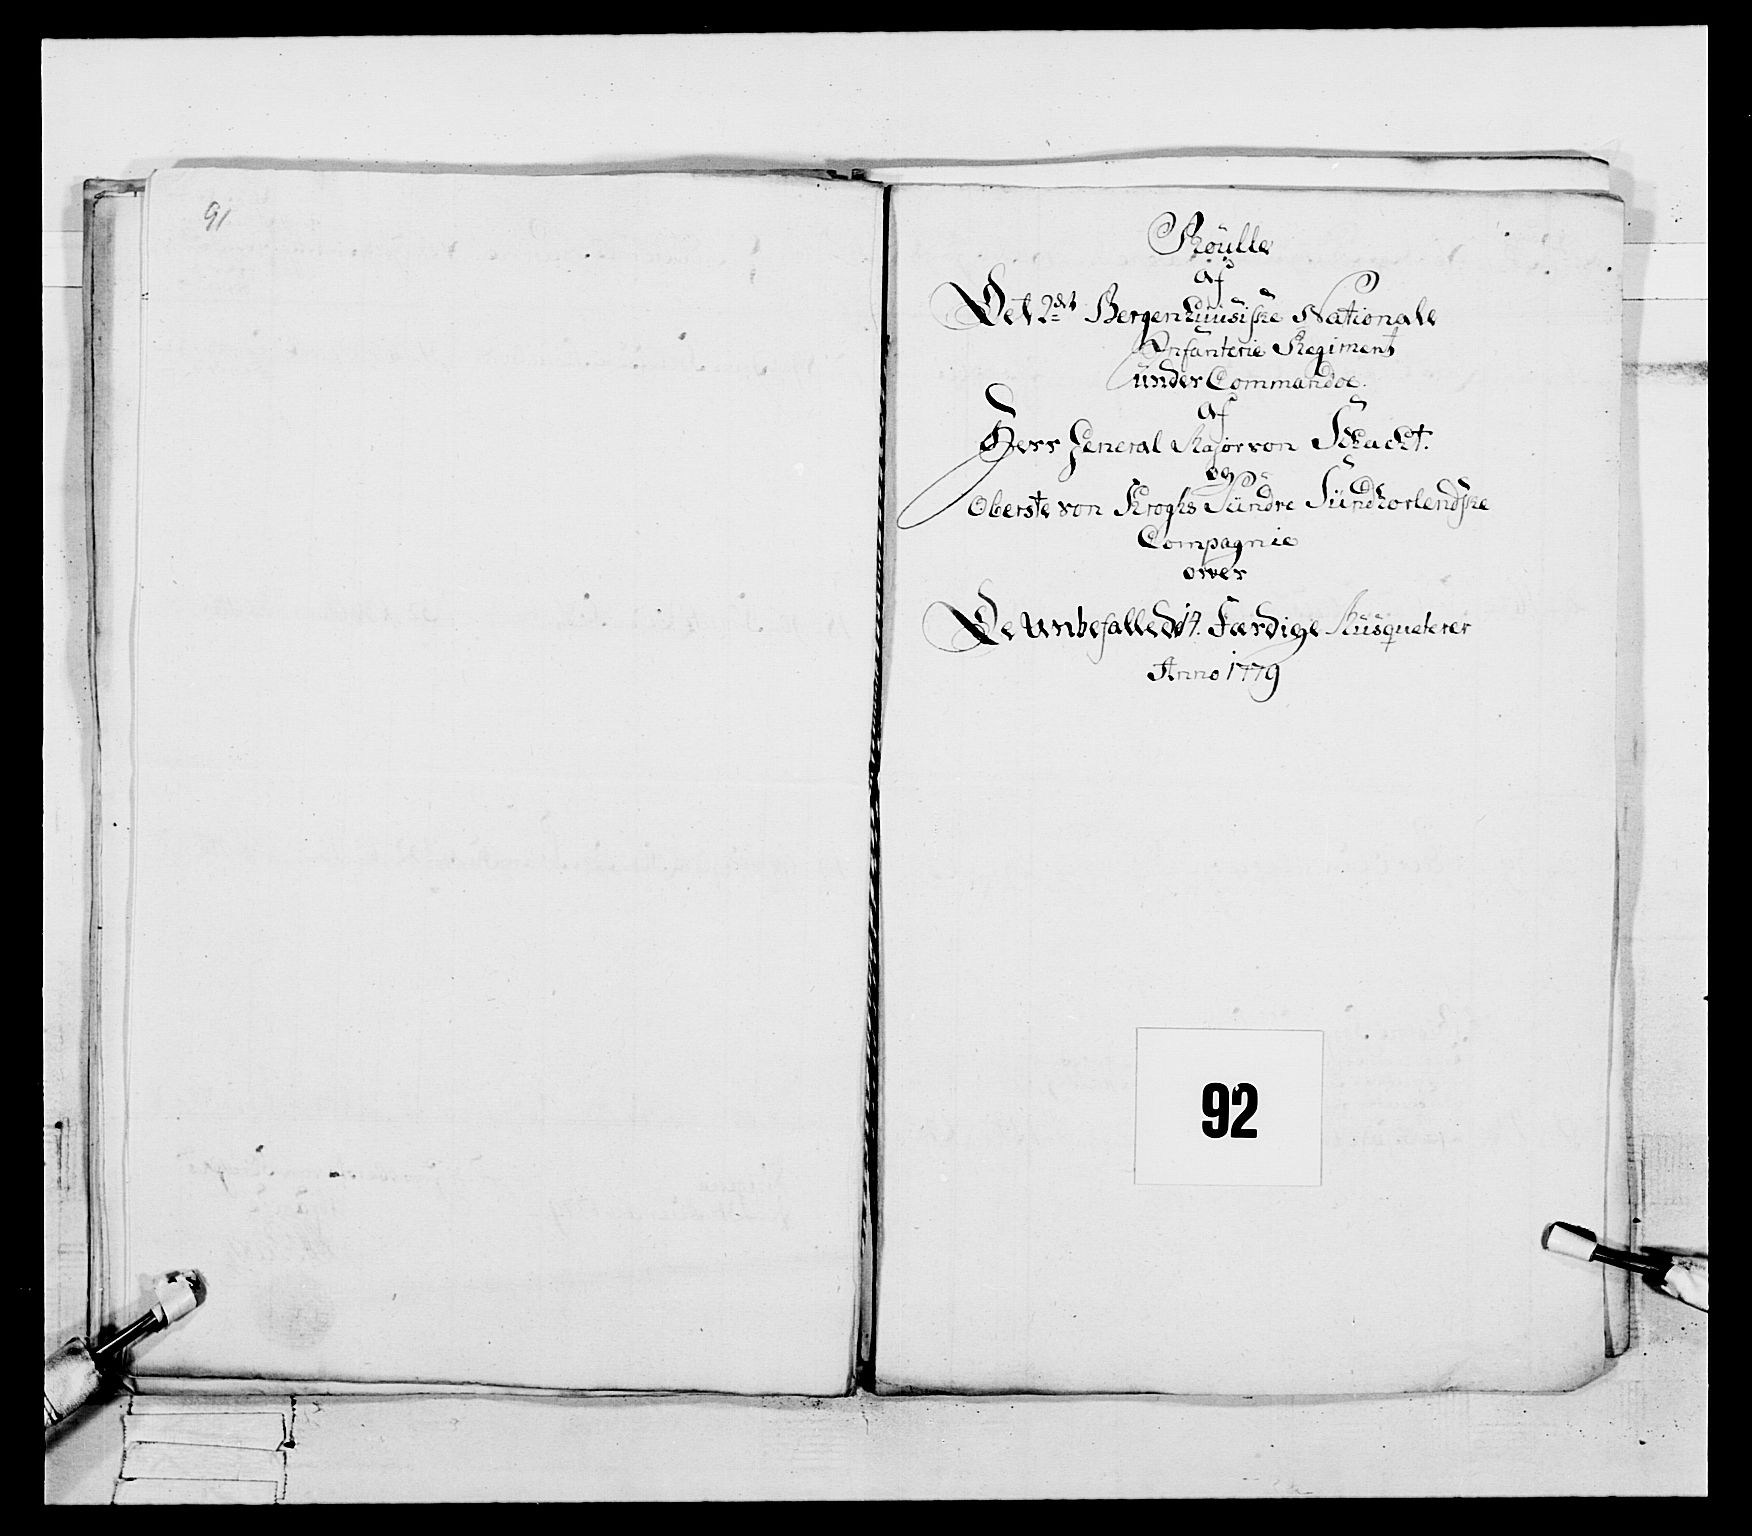 91
Roulle
af
Det 2det Bergenhuusiske Nationale
Infanterie Regiment
under Commandoe.
af
Herr General Major von Schacht.
og
Oberste von Kroghs Søndre Sündhorlendske
Compagnie
over
De Unbefallede Færdige Musqueterer
Anno 1779
92